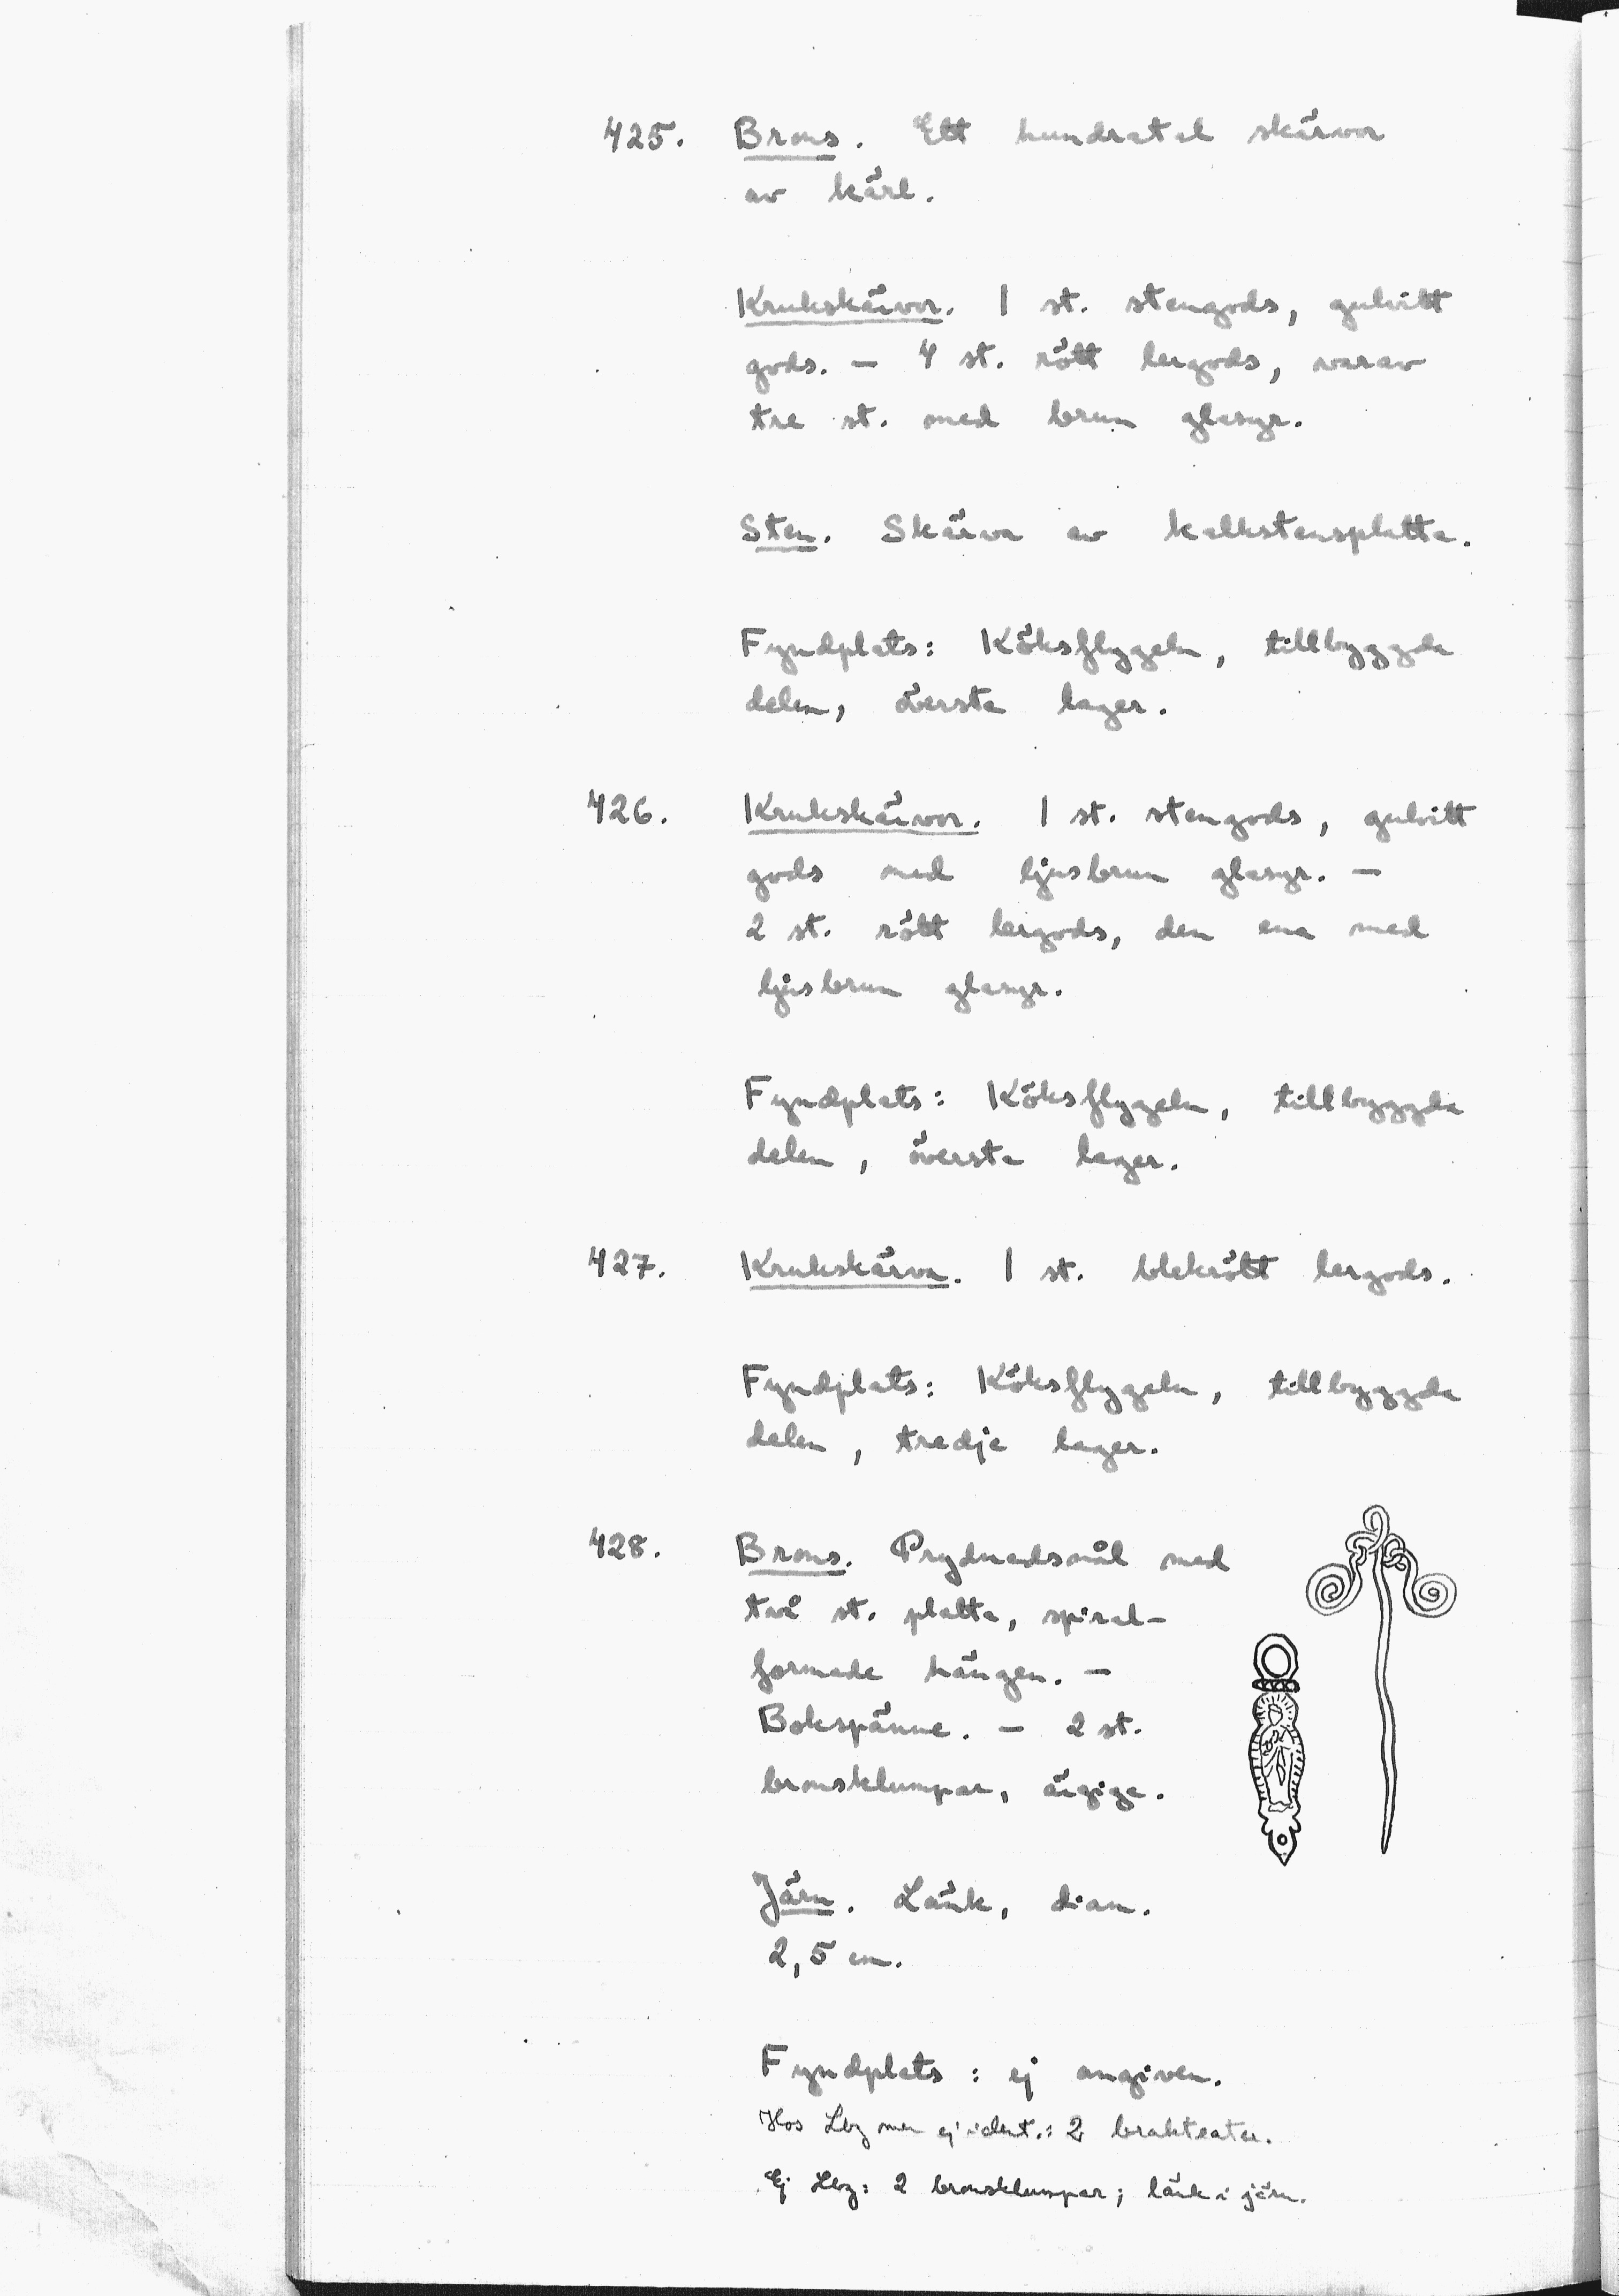 425. Brons. Ett hundratal skärvor
av kärl.
Krukskärvor. 1 st. stengods, gulvitt
gods. — 4 st. rött lergods, varav
tre st. med brun glasyr.
Sten. Skärva av kalkstensplatta.
Fyndplats: Köksflygeln, tillbyggda
delen, översta lager.
426. Krukskärvor. 1 st. stengods, gulvitt
gods med ljusbrun glasyr. —
2 st. rött lergods, den ena med
ljusbrun glasyr.
Fyndplats: Köksflygeln, tillbyggda
delen, översta lager.
427. Krukskärva. 1 st. blekrött lergods.
Fyndplats: Köksflygeln, tillbyggda
delen, tredje lager.
428. Brons. Prydnadsnål med
två st. platta, spiral-
formade hängen. —
Bokspänne. — 2 st.
bronsklumpar, ärgiga.
Järn. Länk, diam.
2,5 cm.
Fyndplats: ej angiven.
Hos Lbg men ej ident.: 2 brakteater.
Ej Lbg: 2 bronsklumpar; länk i järn.